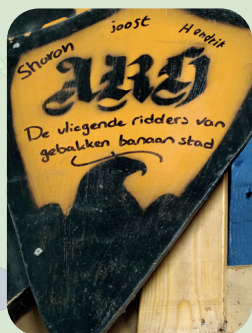 Sharon joost Hendrik
ARG
De vliegende ridders van
gebakken banaan stad